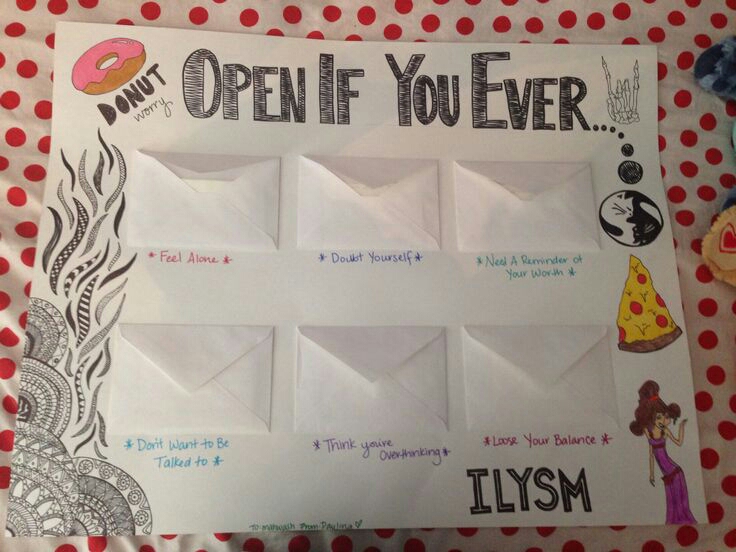 DONUT
worry
OPEN IF YOU EVER....
* Feel Alone *
* Doubt Yourself *
* Need A Reminder of
Your Worth *
* Don't Want to Be
Talked to *
* Think you're
Overthinking *
* Loose Your Balance *
ILYSM
To: Mahwash From: Paulina